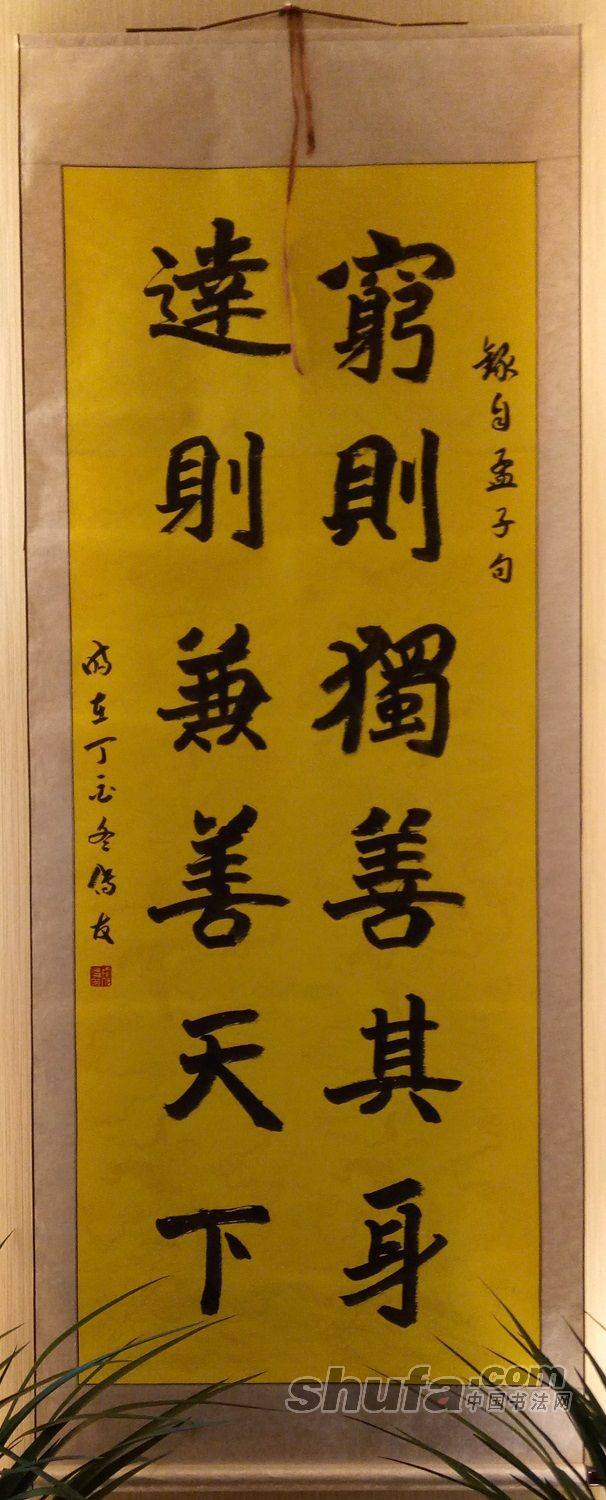 錄自孟子句
窮則獨善其身
達則兼善天下
時在丁酉冬傳友
shufa.com
中国书法网